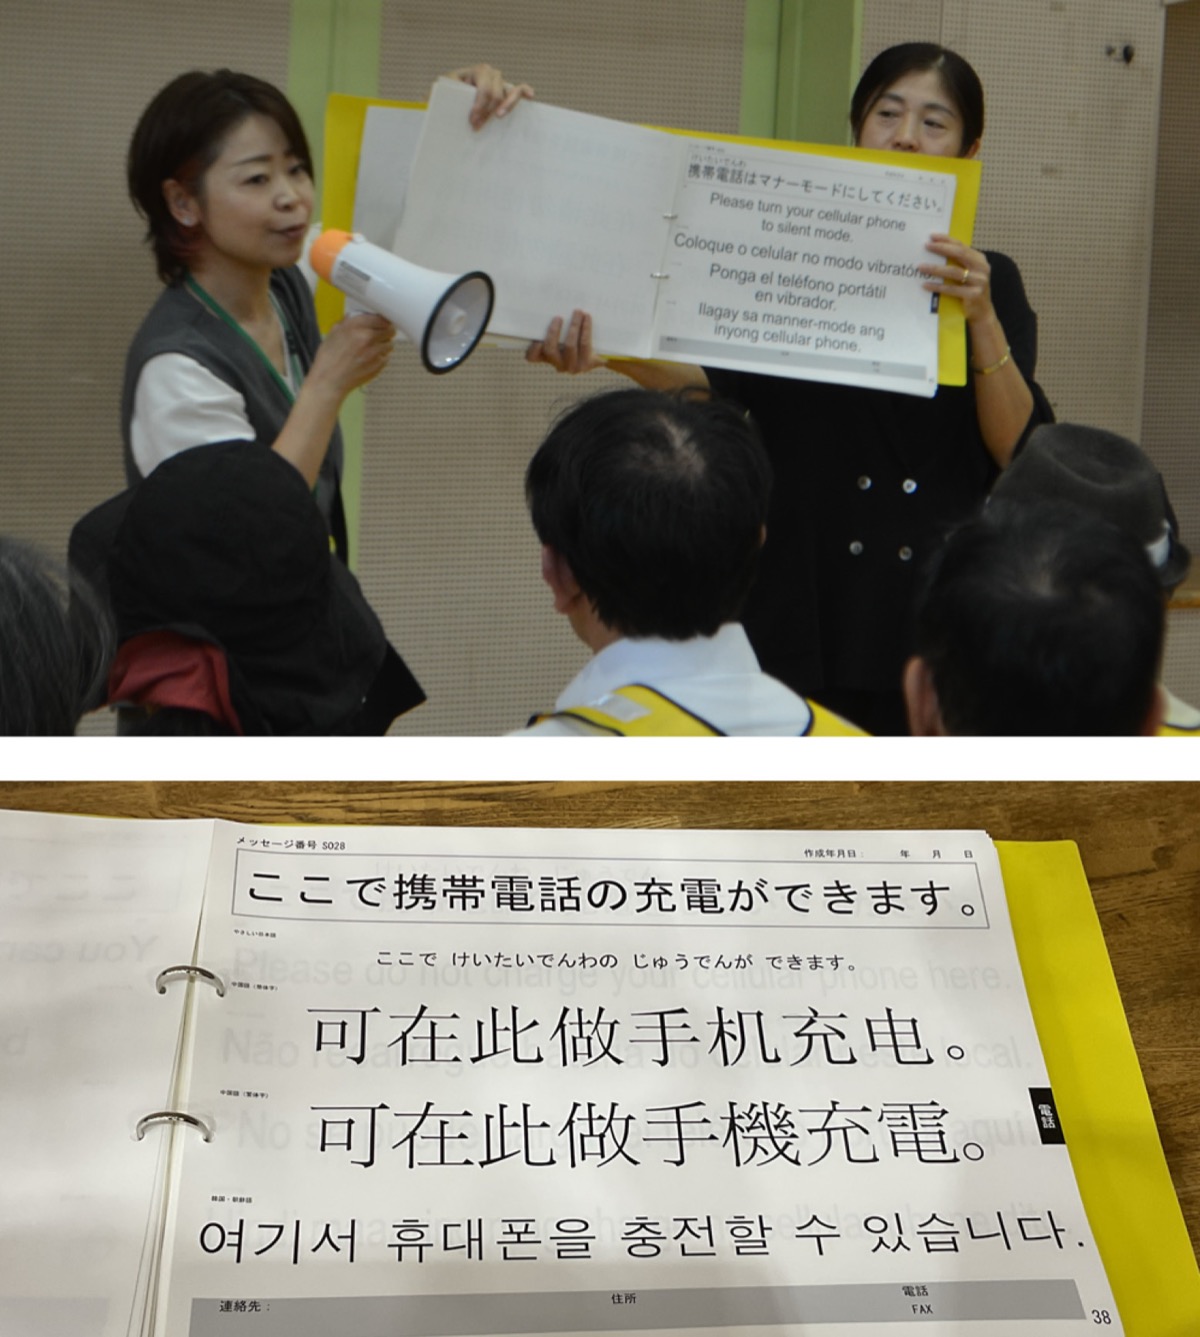 けいたいでんわ
携帯電話はマナーモードにしてください。
Please turn your cellular phone
to silent mode.
Coloque o celular no modo vibratório.
Ponga el teléfono portátil
en vibrador.
Ilagay sa manner-mode ang
inyong cellular phone.
メッセージ番号 S028
作成年月日： 年 月 日
ここで携帯電話の充電ができます。
やさしい日本語
ここで けいたいでんわの じゅうでんが できます。
中国語（簡体字）
可在此做手机充电。
中国語（繁体字）
可在此做手機充電。
電話
韓国・朝鮮語
여기서 휴대폰을 충전할 수 있습니다.
連絡先： 住所 電話
FAX
38